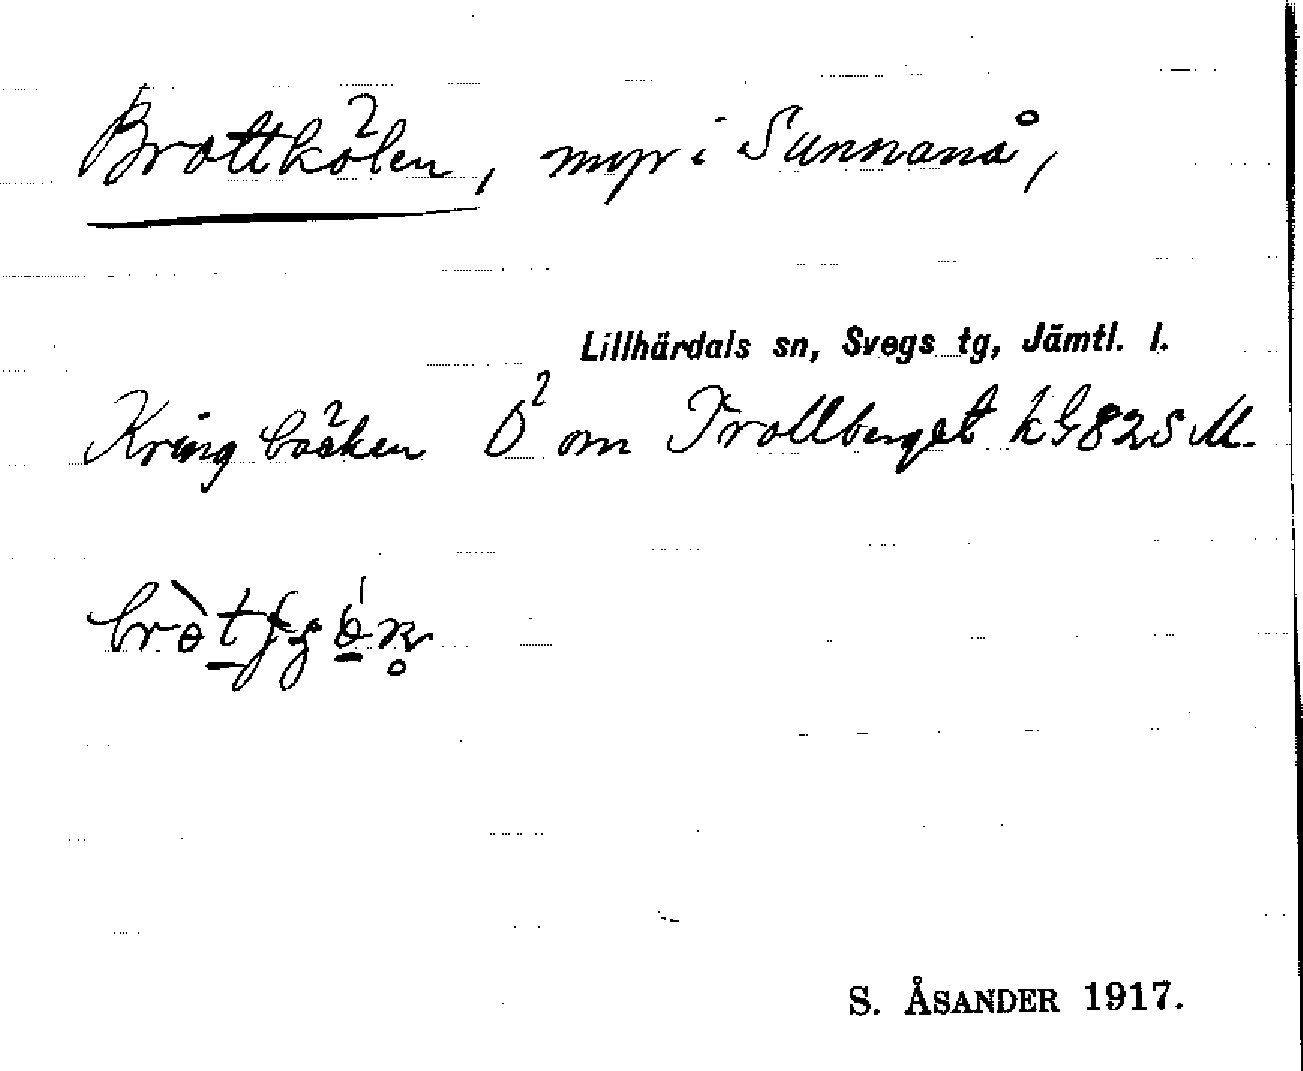 Brottkölen, myr i Sunnanå,
Lillhärdals sn, Svegs tg, Jämtl. l.
Kring bäcken Ö² om Trollberget kG 825 M.
S. ÅSANDER 1917.